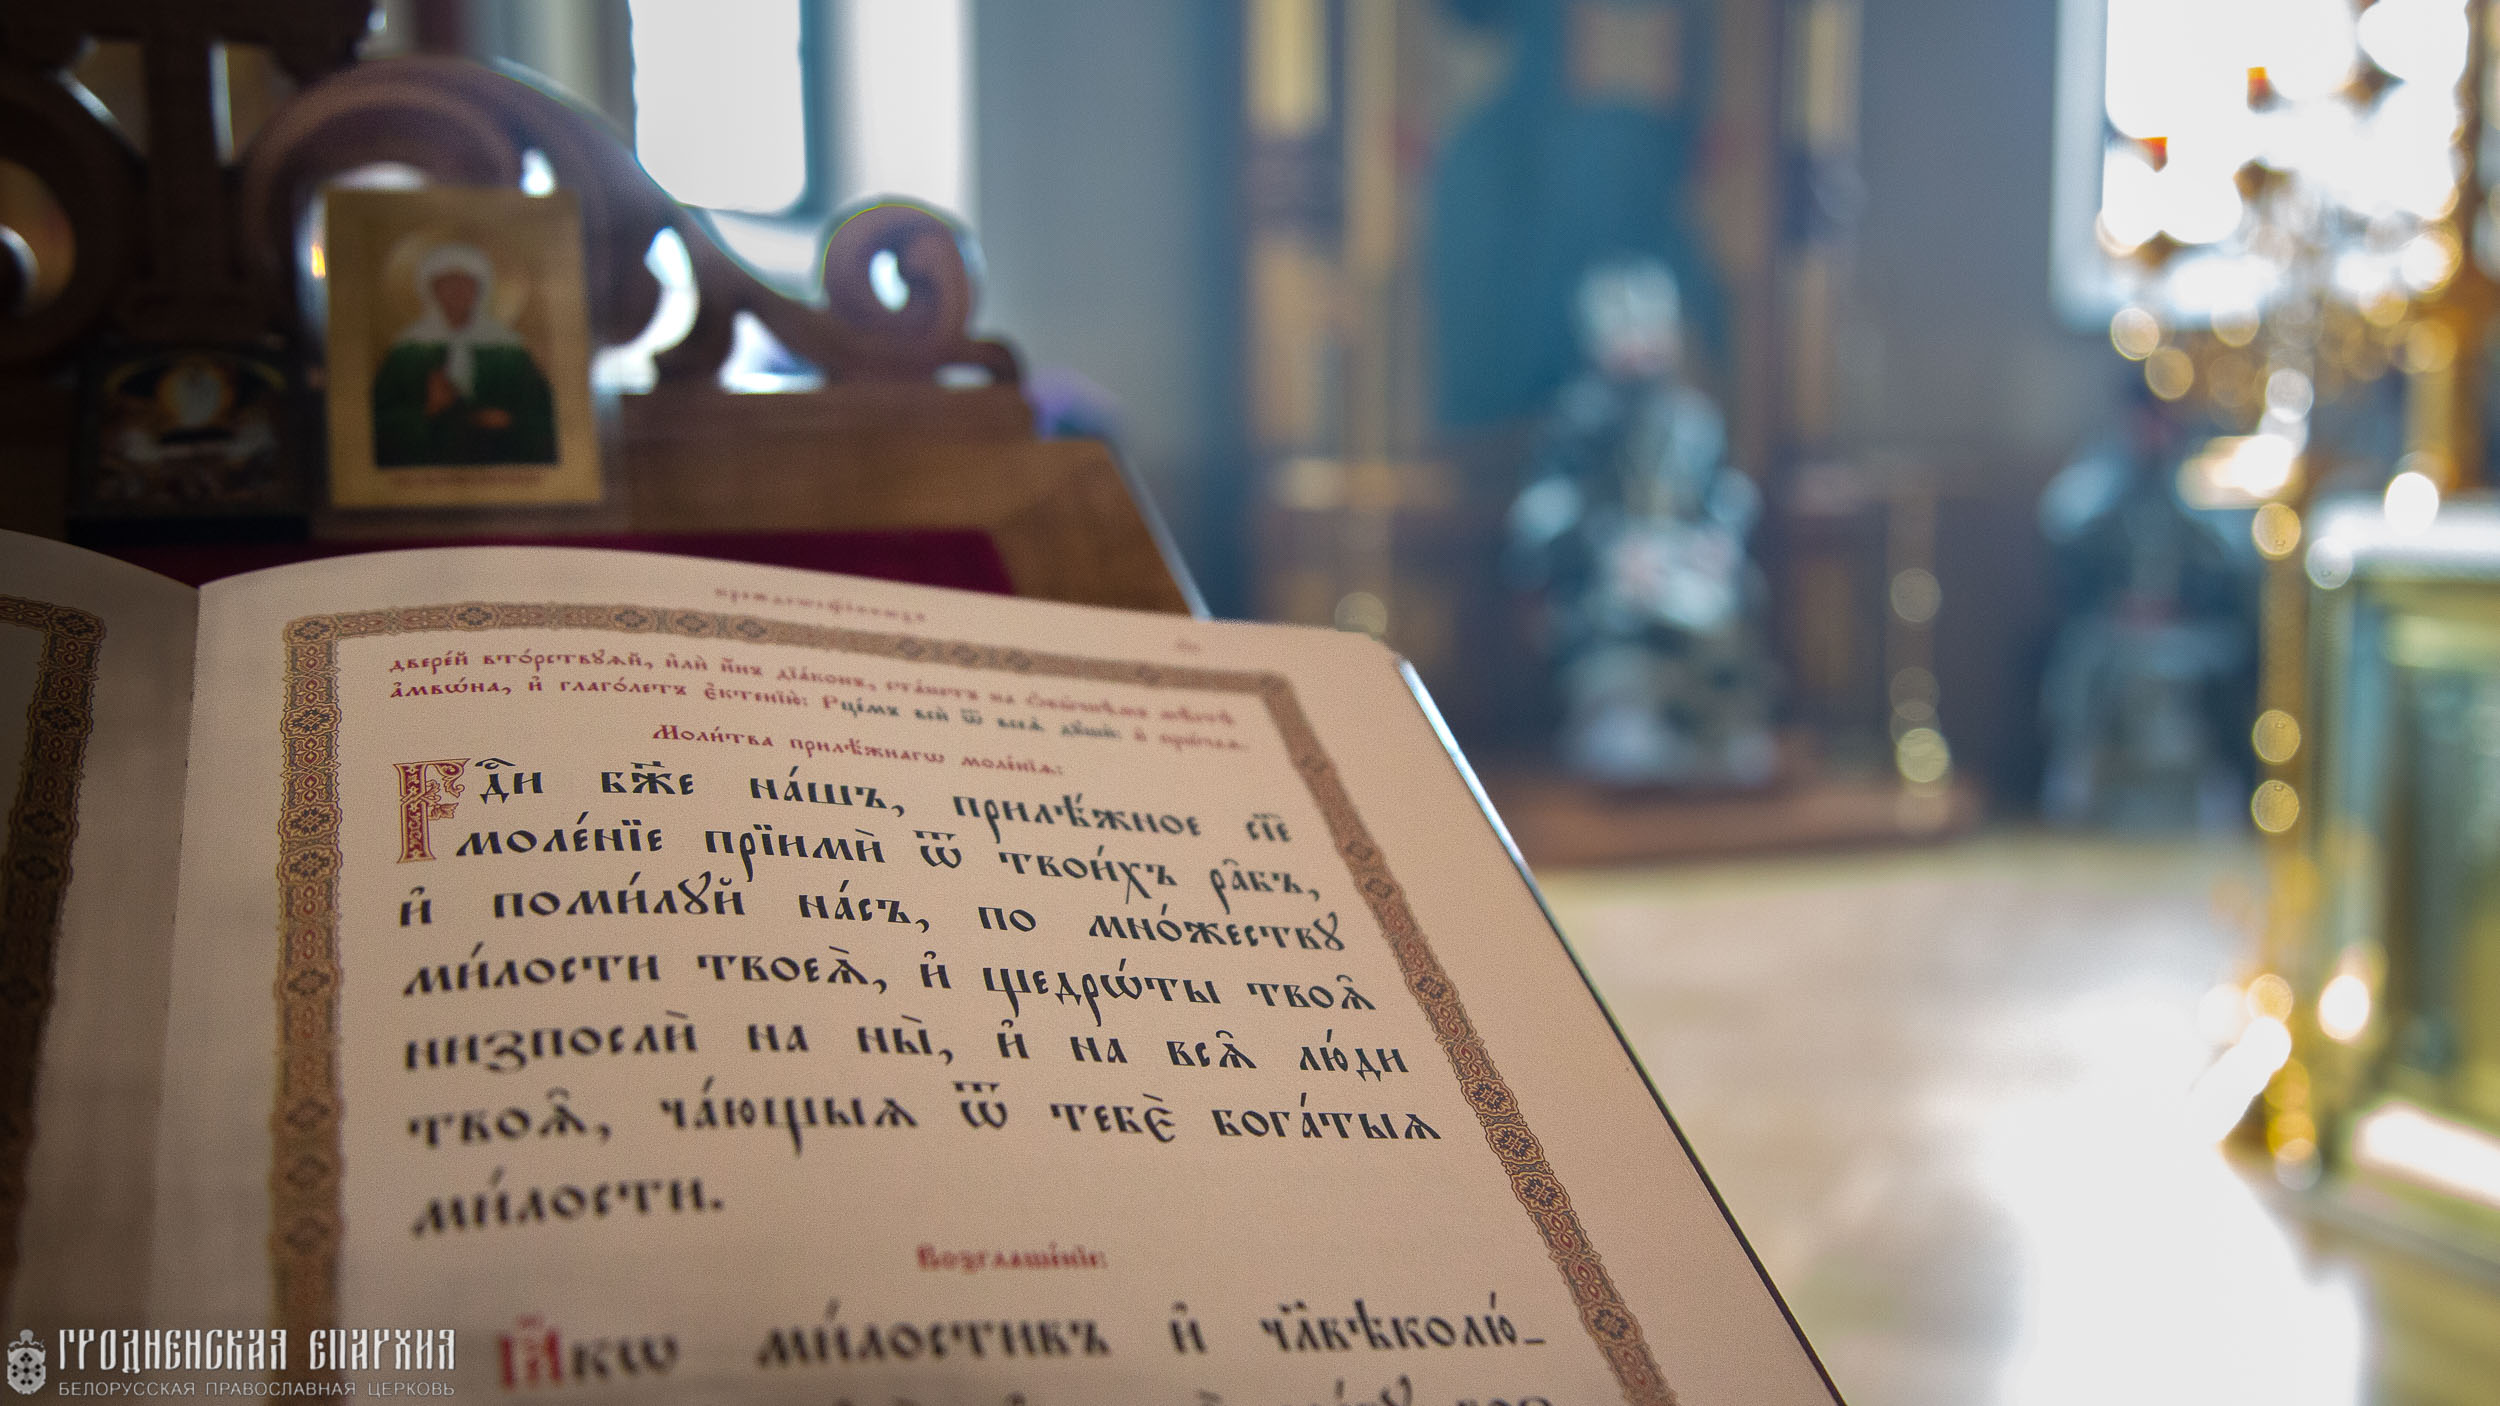 двере́й вто́рствꙋѧй, и҆лѝ и҆́нъ дїа́конъ, ста́нетъ на ѡ҆бы́чнѣмъ мѣ́стѣ
а҆мвѡ́на, и҆ глаго́летъ є҆ктенїю̀: Рце́мъ всѝ ѿ всеѧ̀ дꙋшѝ: и҆ прѡ́чаѧ.
Моли́тва прилѣ́жнагѡ моле́нїѧ:
Гдⷭ҇и бж҃е на́шъ, прилѣ́жное сїѐ
моле́нїе прїимѝ ѿ твои́хъ ра̑бъ,
и҆ поми́лꙋй на́съ, по мно́жествꙋ
ми́лости твоеѧ̀, и҆ щедрѡ́ты твоѧ̑
низпослѝ на ны̀, и҆ на всѧ̑ лю́ди
твоѧ̑, ча́ющыѧ ѿ тебє̀ бога́тыѧ
ми́лости.
Возглаше́нїе:
Ꙗ҆́кѡ ми́лостивъ и҆ чл҃вѣколю́-
ГРОДНЕНСКАЯ ЕПАРХИЯ
БЕЛОРУССКАЯ ПРАВОСЛАВНАЯ ЦЕРКОВЬ